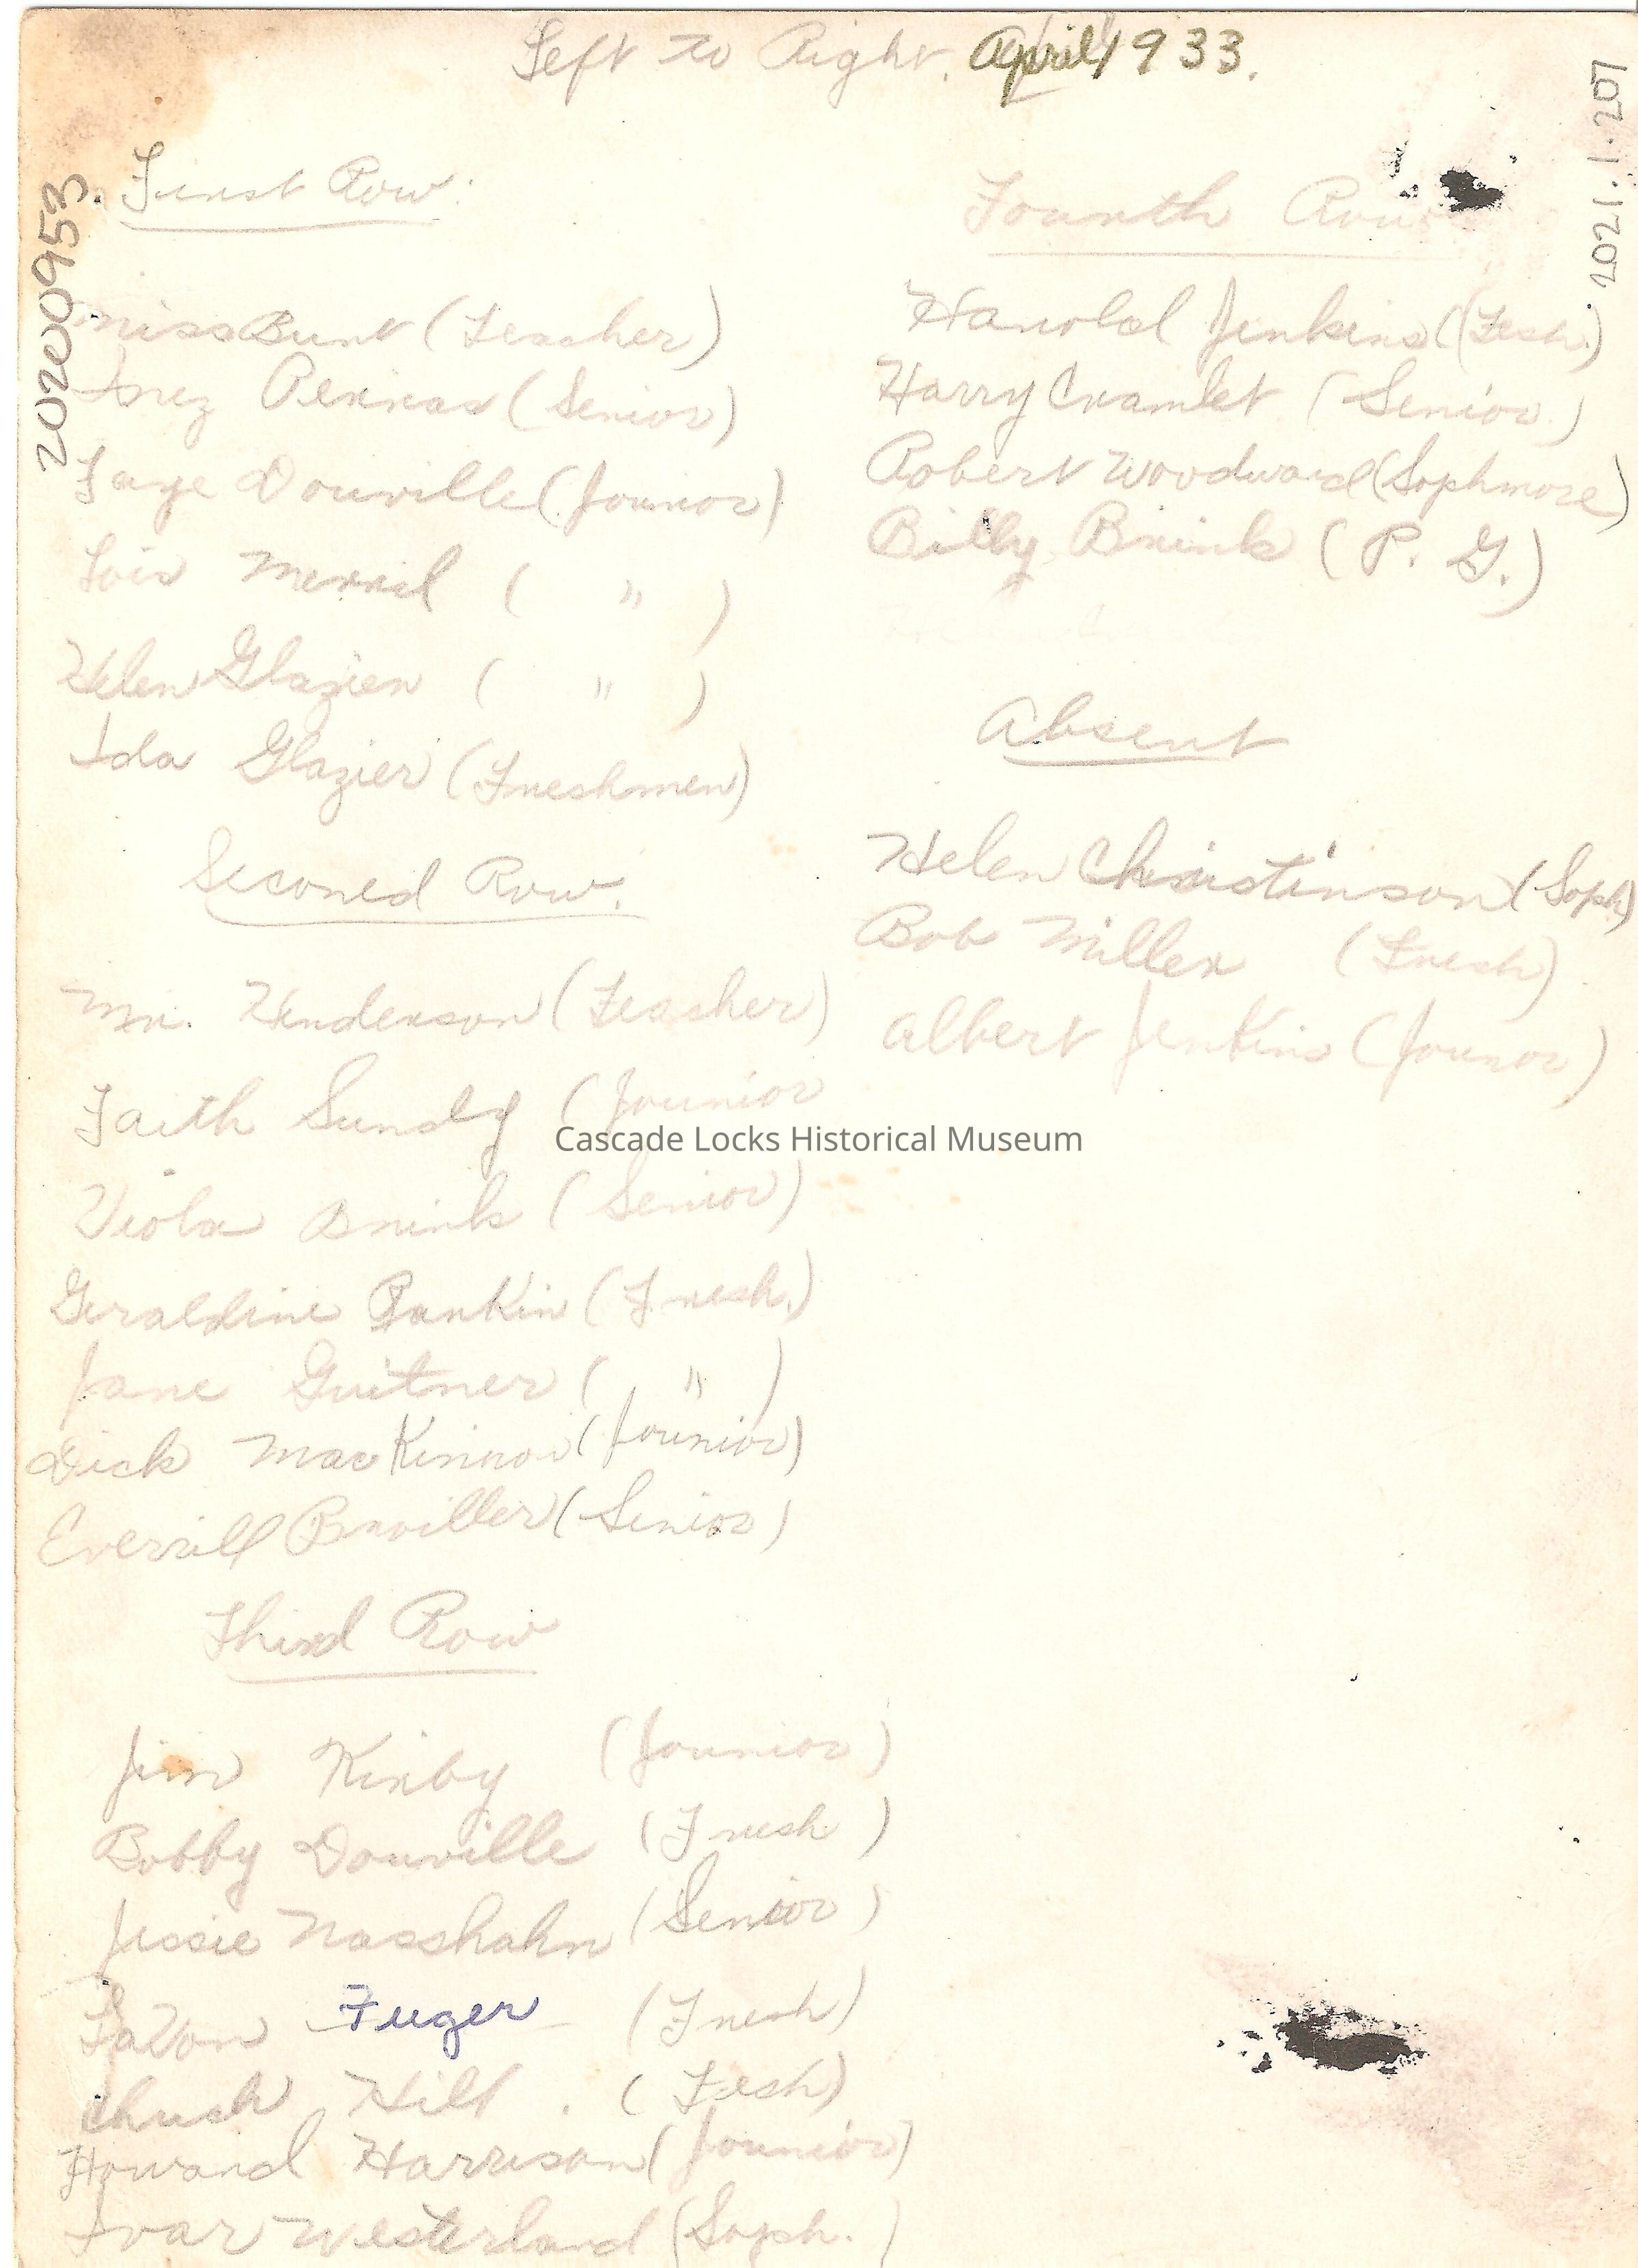 Left to Right. April 1933.
20200953
2021.1.207
First Row:
Miss Bunt (Teacher)
Inez Perras (Senior)
Faye Douville (Jounior)
Lois Merril ( " )
Helen Glazier ( " )
Ida Glazier (Freshmen)
Seconed Row.
Mr. Henderson (Teacher)
Faith Sundy (Jounior
Viola Brink (Senior)
Geraldine Rankin (Fresh.)
Jane Guitner ( " )
Dick MacKinnon (Jounior)
Everrill (Senior)
Third Row
Jim Kirby (Jounior)
Bobby Douville (Fresh)
Jessie Nasshahn (Senior)
LaVon Fuger (Fresh)
Chuck Hill. (Fesh)
Howard Harrison (Jounior)
Ivar Westerlund (Soph.)
Fourth Row
Harold Jenkins (Fesh.)
Harry Cramlet (Senior)
Robert Woodward (Sophmore)
Billy Brink (P. G.)
Absent
Helen Christinson (Soph)
Bob Miller (Fresh)
Albert Jenkins (Jounor)
Cascade Locks Historical Museum